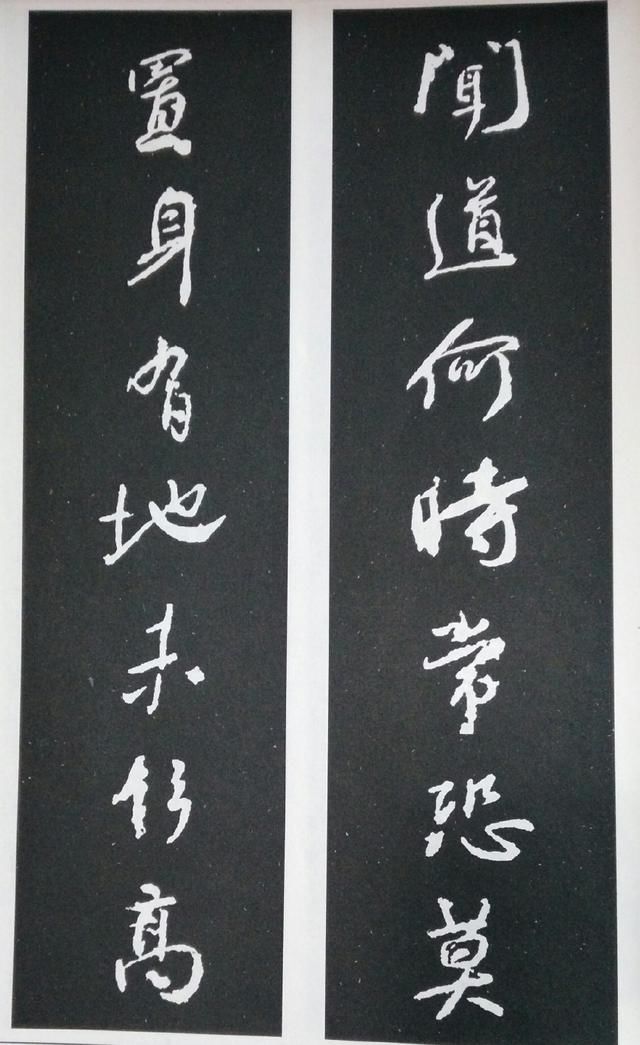 聞道何時常恐莫
置身有地未高